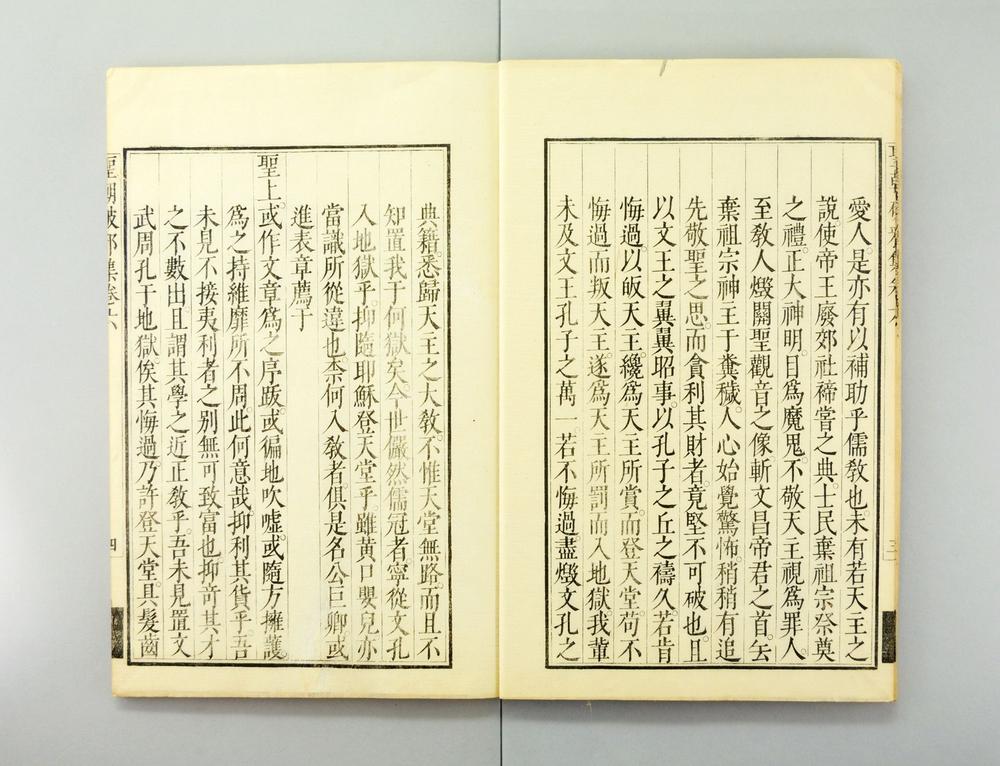 愛人。是亦有以補助乎儒教也。未有若天王之
說使帝王廢郊社禘嘗之典。士民棄祖宗祭奠
之禮。正大神明。目爲魔鬼。不敬天王。視爲罪人。
至敎人燬關聖觀音之像。斬文昌帝君之首。
棄祖宗神王于糞穢。人心始覺驚怖。稍稍有追
先敬聖之思。而貪利其財者。竟堅不可破也。且
以文王之翼翼昭事。以孔子之丘之禱久。若肯
悔過。以皈天王。纔爲天王所賞。而登天堂。苟不
悔過。而叛天王。遂爲天王所罰。而入地獄。我輩
未及文王孔子之萬一。若不悔過。盡燬文孔之
典籍。悉歸天王之大敎。不惟天堂無路。而且不
知置我于何獄矣。今世儼然儒冠者。寧從文孔
入地獄乎。抑隨耶穌登天堂乎。雖黃口嬰兒。亦
當識所從違也。柰何入敎者。俱是名公巨卿。或
進表章薦于
聖上。或作文章爲之序跋。或徧地吹噓。或隨方擁護。
爲之持維靡所不周。此何意哉。抑利其貨乎。吾
未見不接夷利者之别無可致富也。抑奇其才
之不數出。且謂其學之近正敎乎。吾未見置文
武周孔于地獄。俟其悔過。乃許登天堂。具髮齒
聖朝破邪集卷六
三
四